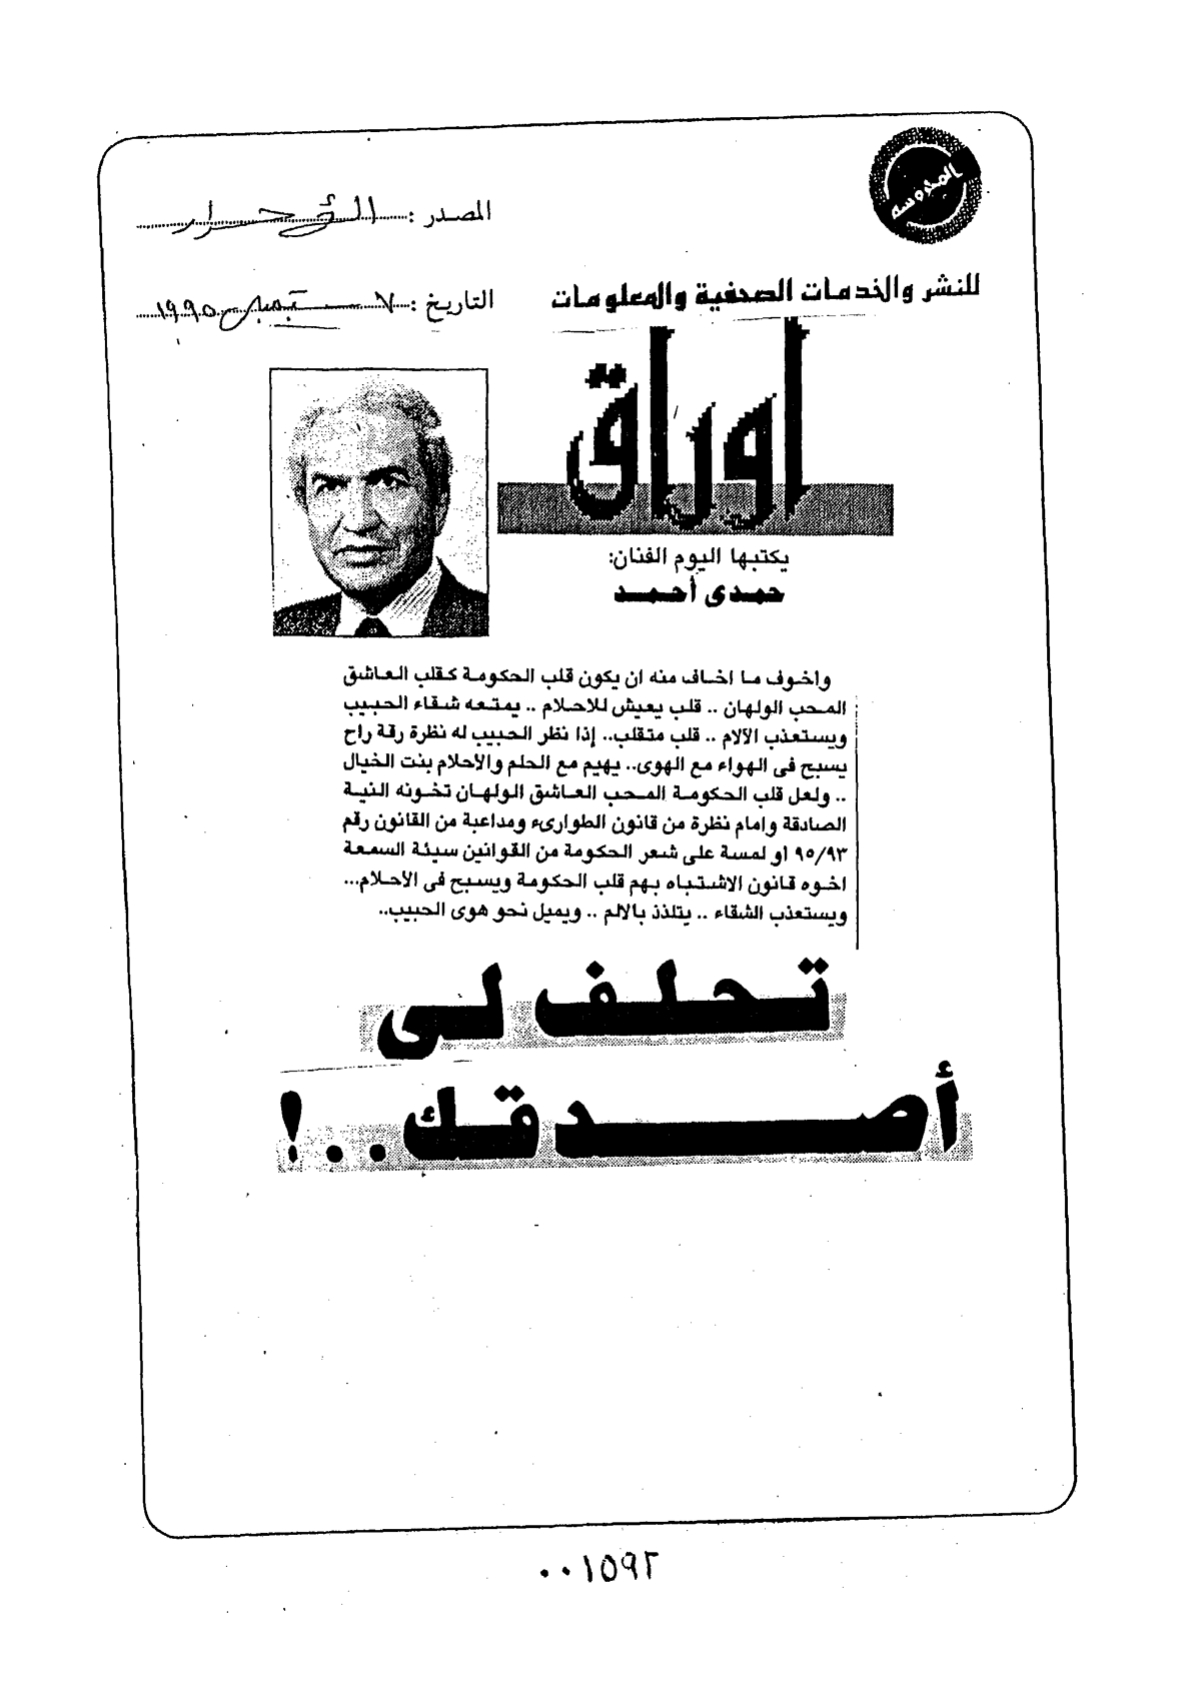 المحروسة
المصدر : الأحرار
للنشر والخدمات الصحفية والمعلومات
التاريخ : ٧ سبتمبر ١٩٩٥
أوراق
يكتبها اليوم الفنان:
حمدى أحمد
واخوف ما اخاف منه ان يكون قلب الحكومة كقلب العاشق
المحب الولهان .. قلب يعيش للاحلام .. يمتعه شقاء الحبيب
ويستعذب الآلام .. قلب متقلب.. إذا نظر الحبيب له نظرة رقة راح
يسبح فى الهواء مع الهوى.. يهيم مع الحلم والاحلام بنت الخيال
.. ولعل قلب الحكومة المحب العاشق الولهان تخونه النية
الصادقة وامام نظرة من قانون الطوارىء ومداعبة من القانون رقم
٩٥/٩٣ او لمسة على شعر الحكومة من القوانين سيئة السمعة
اخوه قانون الاشتباه بهم قلب الحكومة ويسبح فى الاحلام...
ويستعذب الشقاء .. يتلذذ بالالم .. ويميل نحو هوى الحبيب..
تحلف لى
أصدقك..!
٠٠١٥٩٢